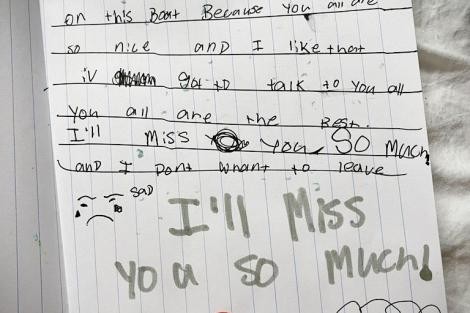 on this Boat Because you all are
so nice and I like that
iv got to talk to you all
you all are the Best.
I'll miss you so much!
and I Dont whant to leave
SAD
I'll Miss
you so much!